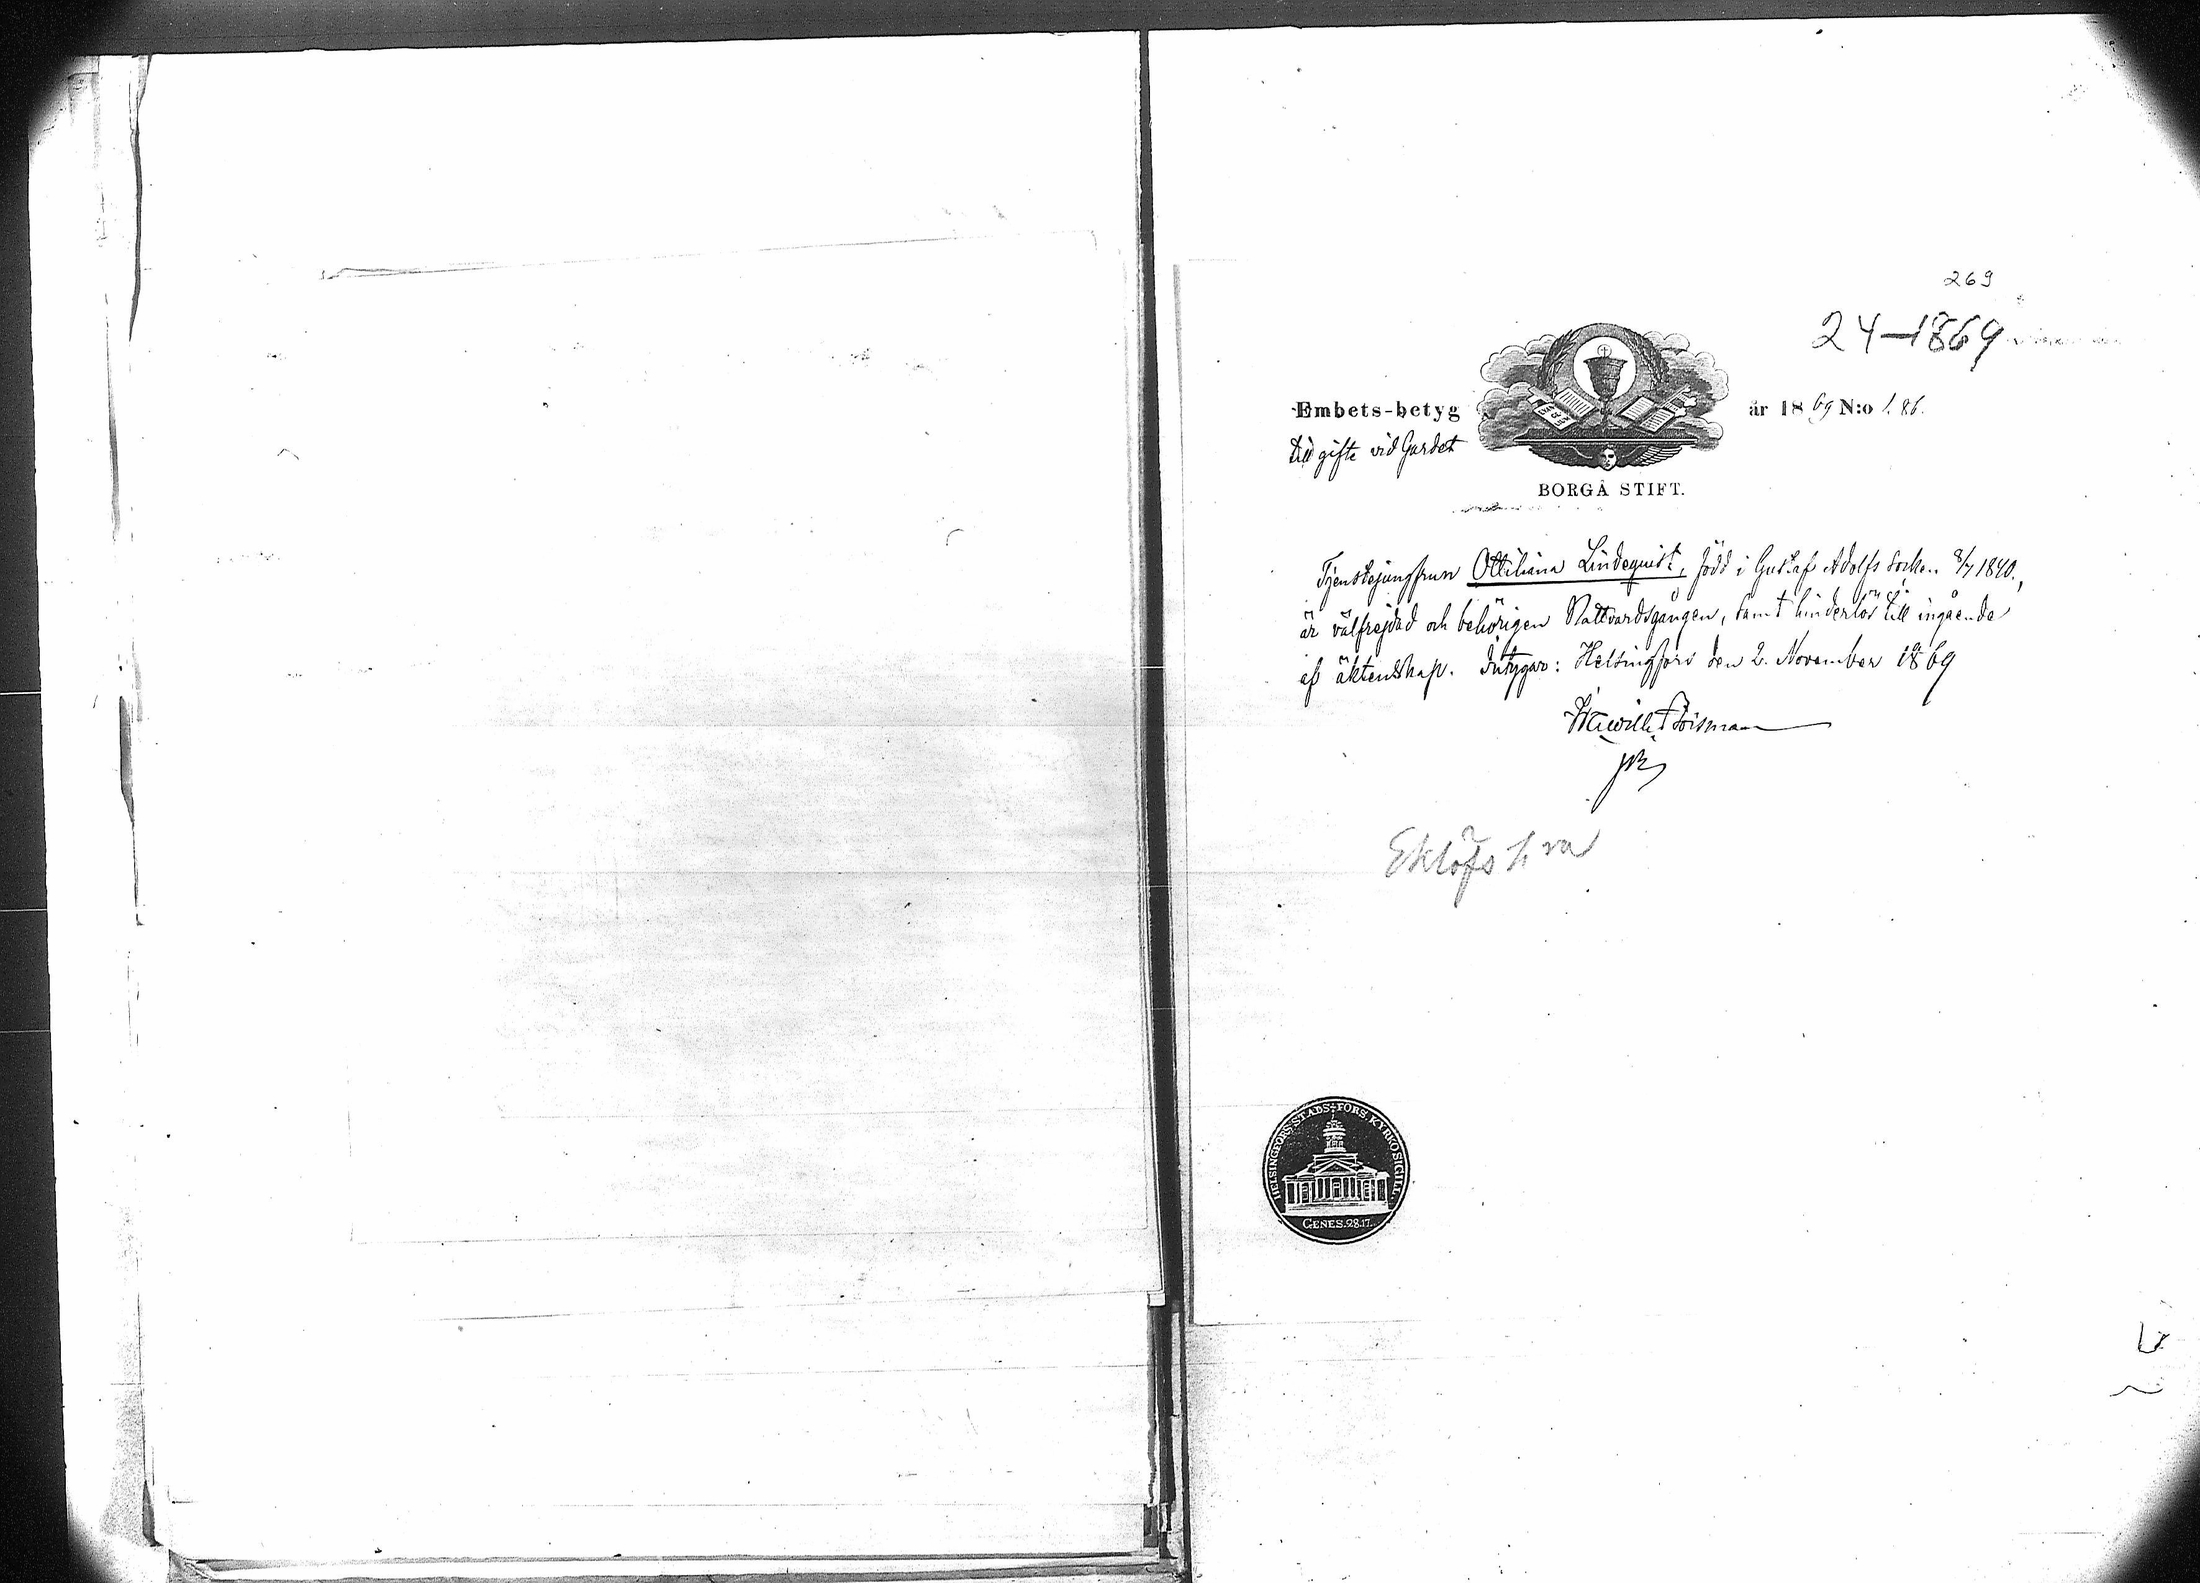 269
24-1869
Embets-betyg år 1869 N:o 1.86.
till gifte vid Gardet
BORGÅ STIFT.
Tjenstejungfrun Ottiliana Lindequist, född i Gustaf Adolfs Socken 8/7 1840.,
är välfrejdad och behörigen Nattvardsgången, samt hinderlös till ingående
af äktenskap. Intygar: Helsingfors den 2. November 1869
Eklöfs
HELSINGFORS STADS FÖRS. KYRKOSIGILL.
GENES. 28.17.